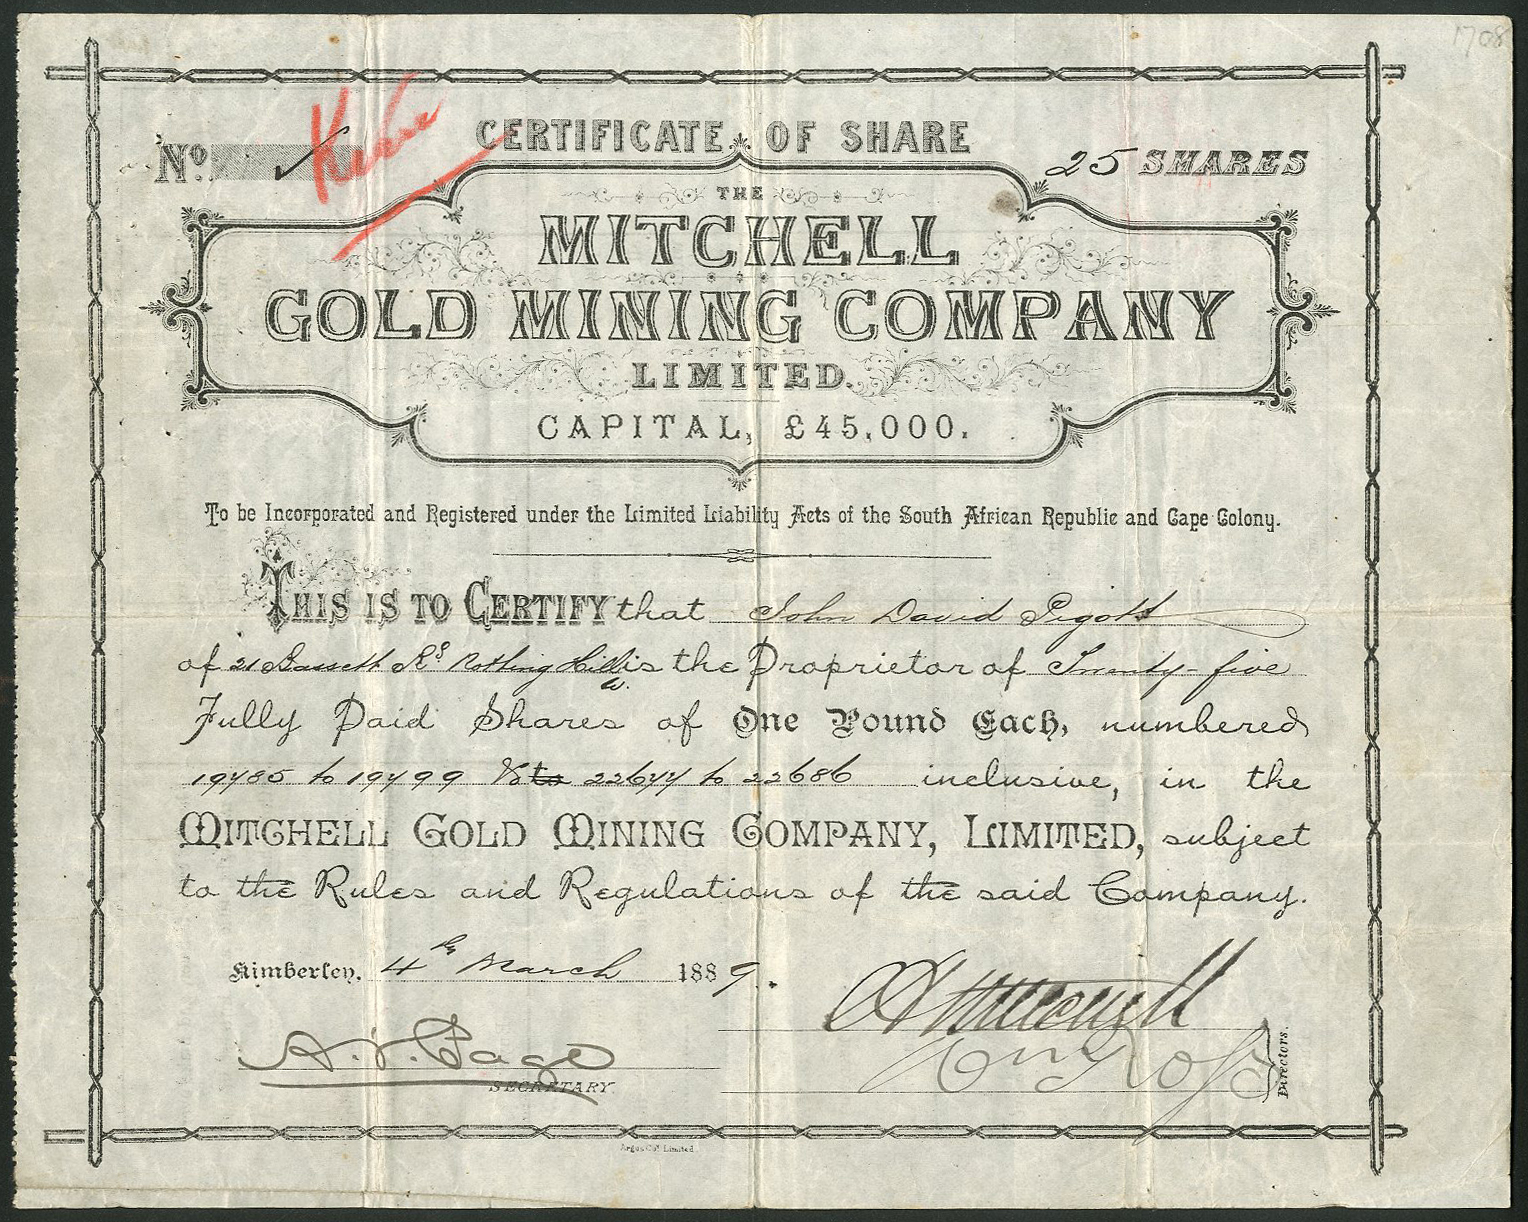 1708
CERTIFICATE OF SHARE
No. 25 SHARES
THE
MITCHELL
GOLD MINING COMPANY
LIMITED.
CAPITAL, £45,000.
To be Incorporated and Registered under the Limited Liability Acts of the South African Republic and Cape Colony.
THIS IS TO CERTIFY that John David Pigott
of 21 Bassett Rd Notting Hill W. is the Proprietor of Twenty-five
Fully Paid Shares of One Pound Each, numbered
19485 to 19499 & to 22677 to 22686 inclusive, in the
MITCHELL GOLD MINING COMPANY, LIMITED, subject
to the Rules and Regulations of the said Company.
Kimberley, 4th March 1889.
SECRETARY
Directors.
Argus Co. Limited.